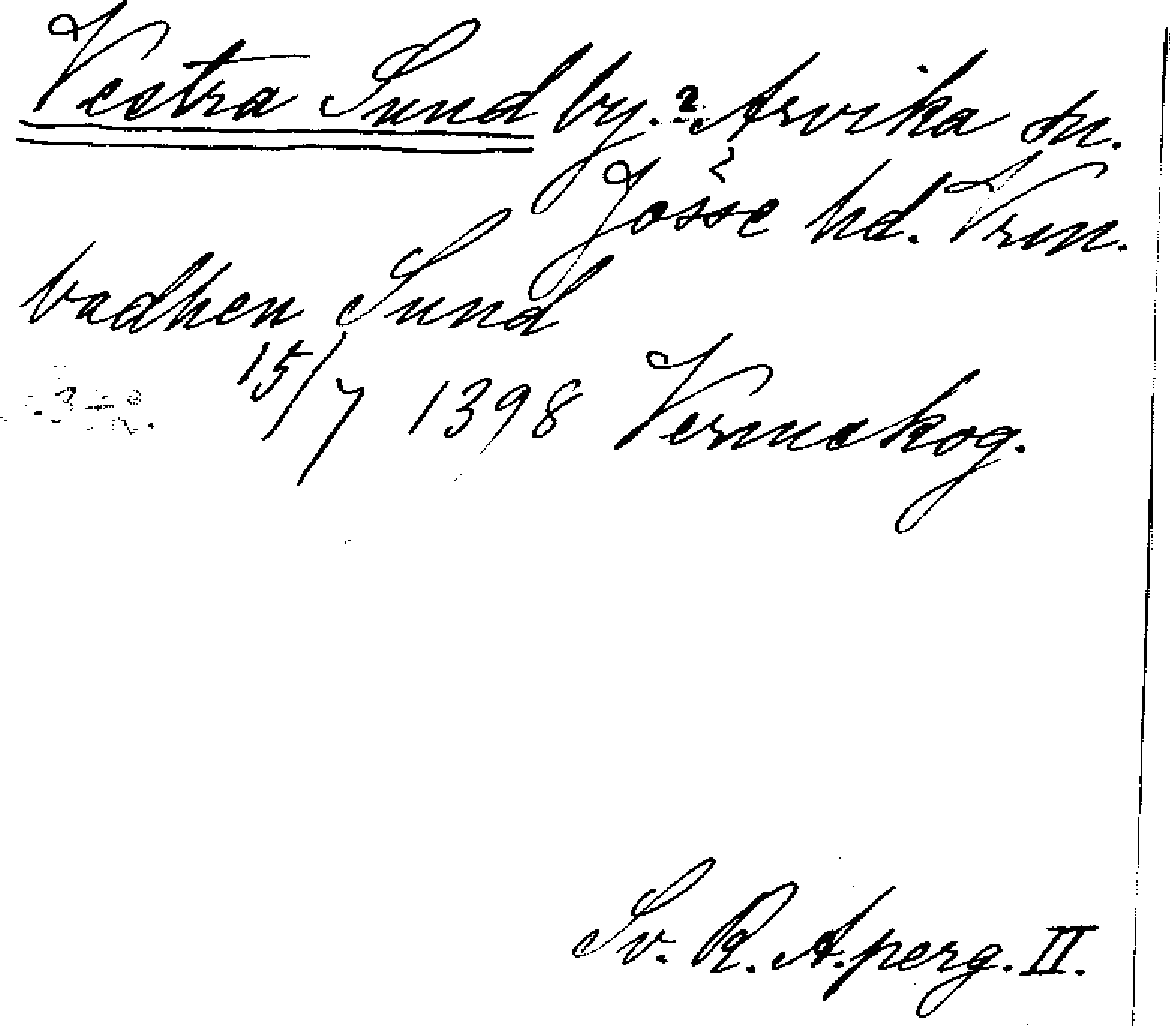 Vestra Sund by. ? Arvika sn.
Jösse hd. Vrm.
badhen Sund
15/7 1398 Vermskog.
Sv. R. A. perg. II.